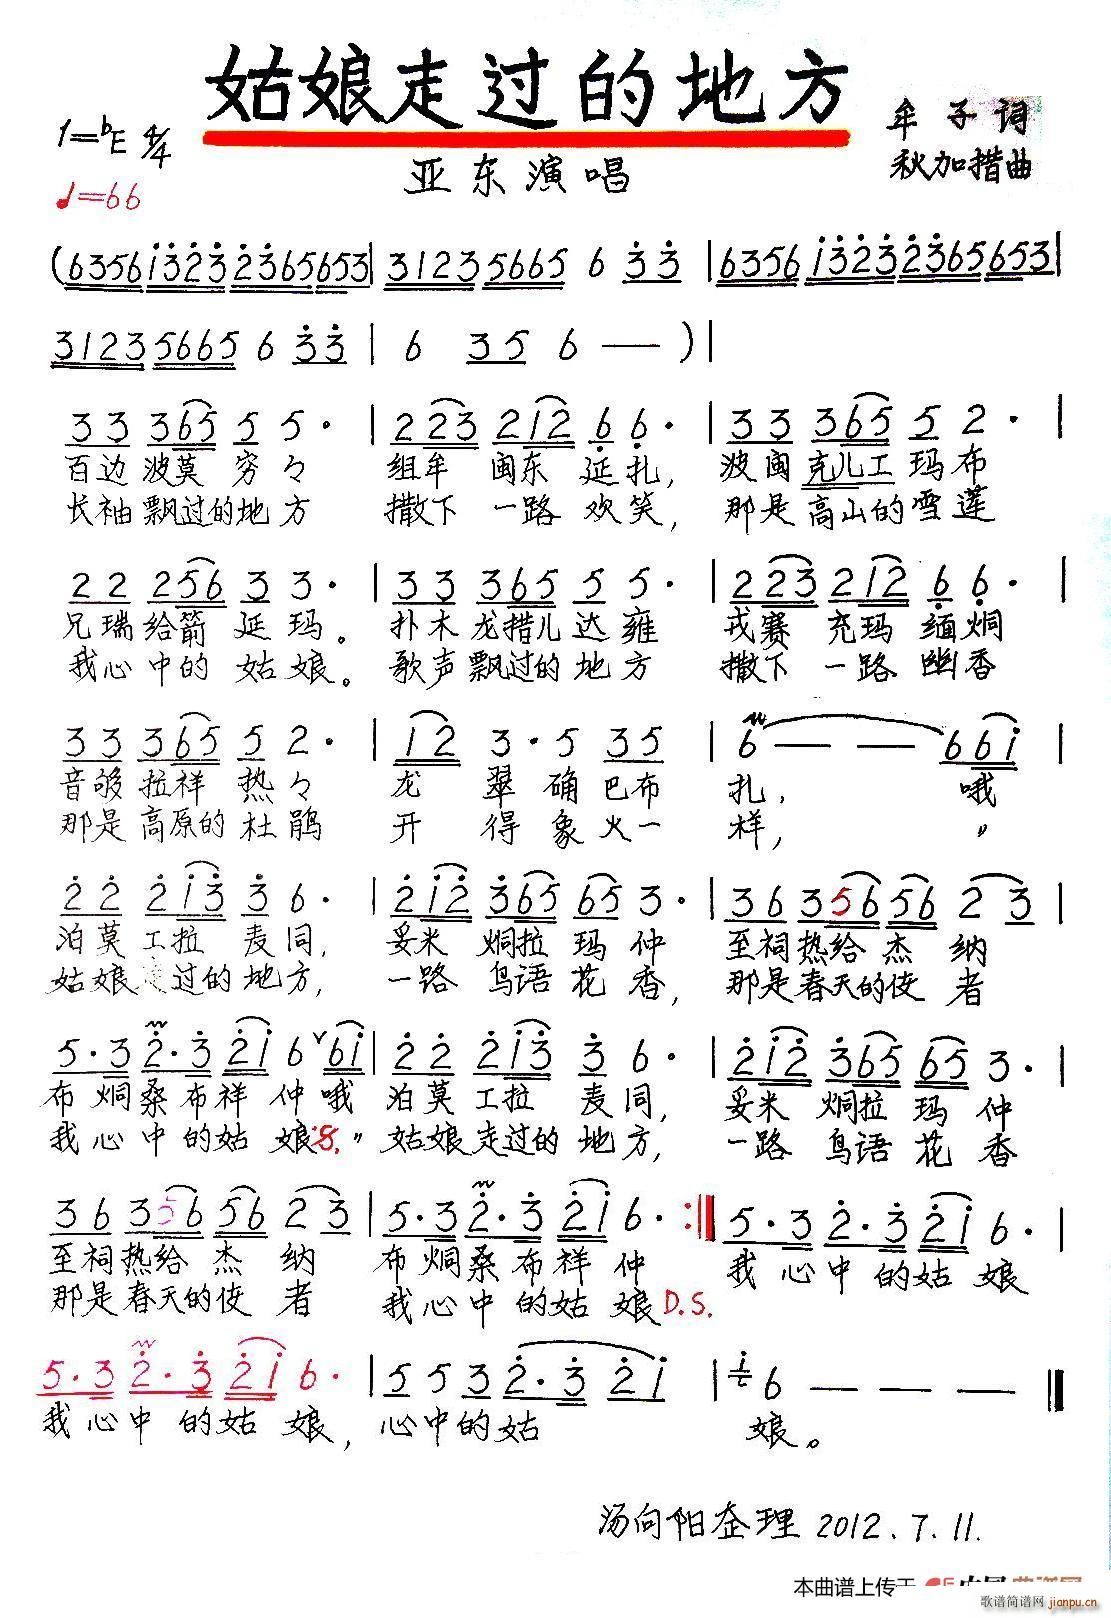 姑娘走过的地方
1=♭E 4/4
牟子词
♩=66
亚东演唱
秋加措曲
(6356 1323 2365 653 | 3123 5665 6 33 | 6356 1323 2365 653 |
3123 5665 6 33 | 6 35 6 — ) |
33 365 5 5· | 223 212 6 6· | 33 365 5 2· |
百边波莫 穷々 组牟 闽东 延扎, 波闽克儿工玛布
长袖飘过的地方 撒下 一路欢笑, 那是高山的雪莲
22 256 3 3· | 33 365 5 5· | 223 212 6 6· |
兄瑞给箭 延玛。 扑木龙措儿达雍 戎赛 充玛缅炯
我心中的 姑娘。 歌声飘过的地方 撒下 一路幽香
33 365 5 2· | 12 3·5 35 | 6 — — 661 |
音够拉祥 热々 龙 翠确巴布 扎, 哦
那是高原的杜鹃 开 得象火一 样, 〃
22 213 3 6· | 212 365 65 3· | 36 356 56 2 3 |
泊莫工拉 麦同, 妥米 炯拉 玛仲 至祠热给杰 纳
姑娘走过的地方, 一路 鸟语花香, 那是春天的使 者
5·3 2·3 21 6 ∨61 | 22 213 3 6· | 212 365 65 3· |
布炯桑布祥仲哦 泊莫工拉 麦同, 妥米 炯拉 玛仲
我心中的姑娘 〃 姑娘走过的地方, 一路 鸟语花香
36 356 56 2 3 | 5·3 2·3 21 6· :‖ 5·3 2·3 21 6· |
至祠热给杰 纳 布炯桑布祥仲 我心中的姑娘
那是春天的使 者 我心中的姑娘 D.S.
5·3 2·3 21 6· | 5 5 3 2·3 2 1 | 6 — — — ‖
我心中的姑娘, 心中的姑 娘。
汤向阳整理 2012.7.11.
本曲谱上传于
歌谱简谱网 jianpu.cn